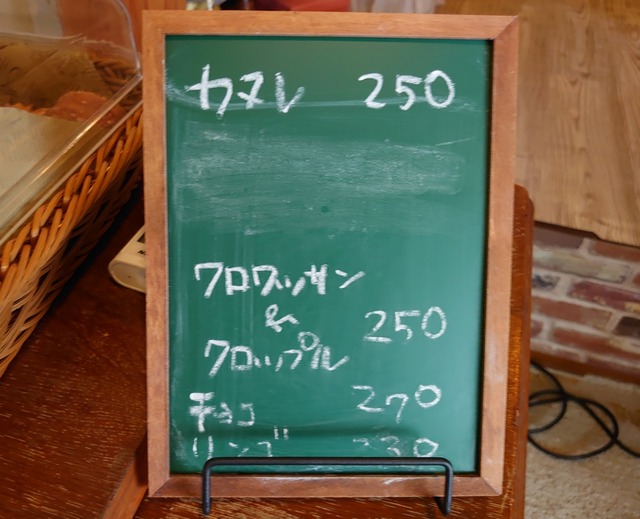 カヌレ 250
クロワッサン
& 250
クロッフル
チョコ 270
リンゴ